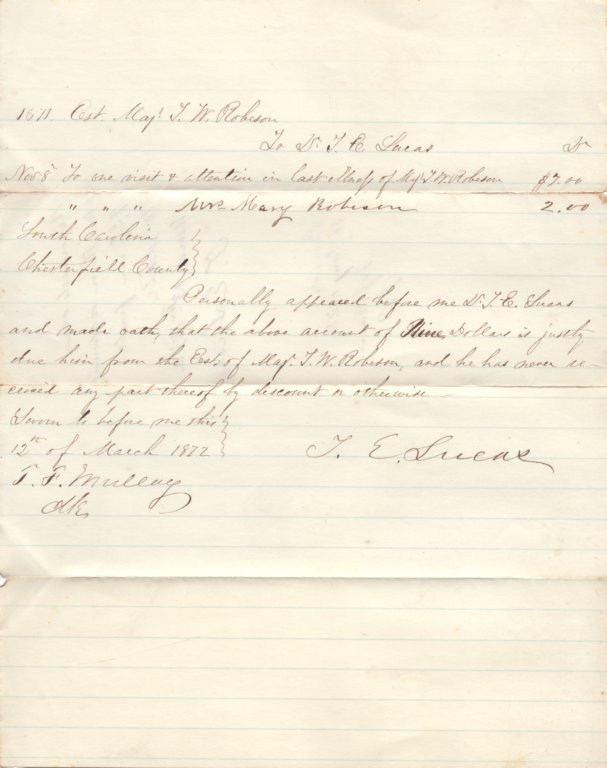 1871. Est. Majr T. W. Robeson
To Dr. T. E. Lucas Dr
Nov 8 To one visit & attention in last illness of Maj. T. W. Robeson $7.00
" " " " Mrs Mary Robeson 2.00
South Carolina }
Chesterfield County }
Personally appeared before me Dr. T. E. Lucas
and made oath, that the above account of Nine Dollars is justly
due him from the Est. of Maj. T. W. Robeson, and he has never re-
ceived any part thereof by discount or otherwise —
Sworn to before me this }
12th of March 1872 } T. E. Lucas
T. F. Malloy
Clk